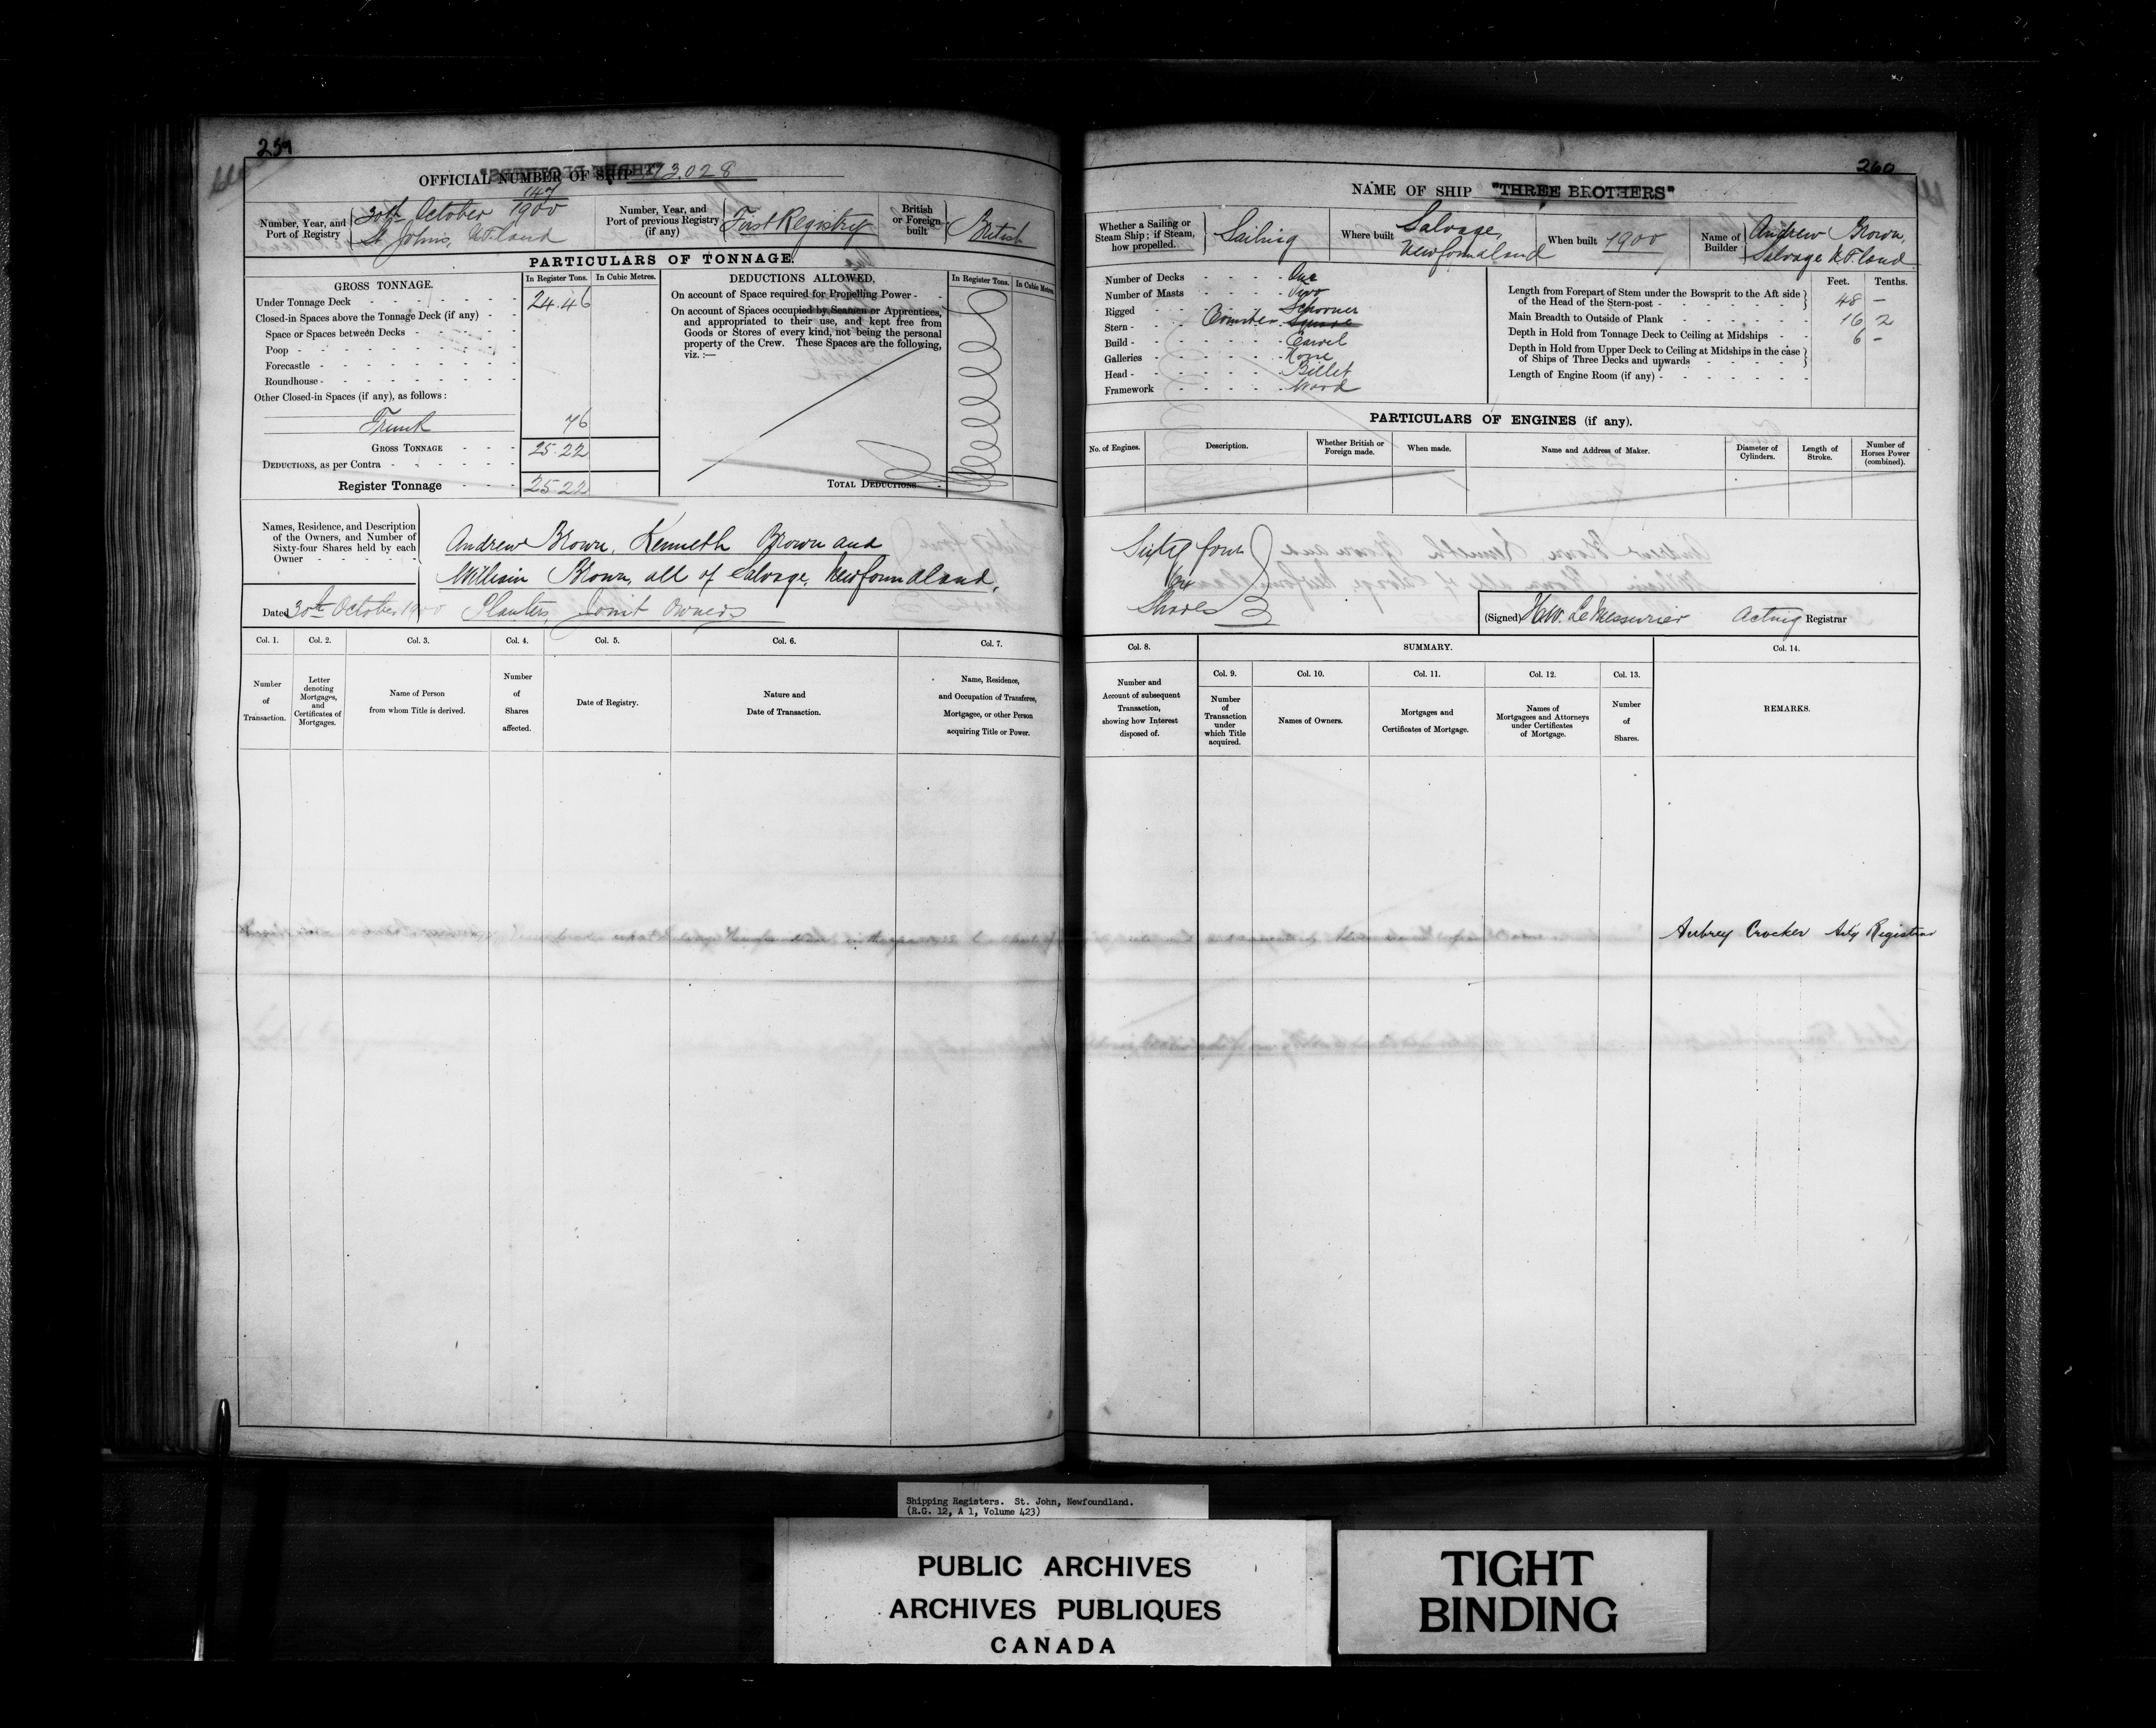 259
OFFICIAL NUMBER OF SHIP 73.028
Number, Year, and Port of Registry
147/1900
30th October
St Johns, N.F.land
Number, Year, and Port of previous Registry (if any)
First Registry
British or Foreign built
British
PARTICULARS OF TONNAGE.
GROSS TONNAGE.
In Register Tons.
In Cubic Metres.
Under Tonnage Deck 24.46
Closed-in Spaces above the Tonnage Deck (if any)
Space or Spaces between Decks
Poop
Forecastle
Roundhouse
Other Closed-in Spaces (if any), as follows:
Trunk 76
GROSS TONNAGE 25.22
DEDUCTIONS, as per Contra
Register Tonnage 25.22
DEDUCTIONS ALLOWED.
In Register Tons.
In Cubic Metres.
On account of Space required for Propelling Power
On account of Spaces occupied by Seamen or Apprentices, and appropriated to their use, and kept free from Goods or Stores of every kind, not being the personal property of the Crew. These Spaces are the following, viz.:—
TOTAL DEDUCTIONS
Names, Residence, and Description of the Owners, and Number of Sixty-four Shares held by each Owner
Andrew Brown, Kenneth Brown and
William Brown, all of Salvage, Newfoundland,
Planters, Joint Owners
Dated 30th October 1900
Col. 1.
Number of Transaction.
Col. 2.
Letter denoting Mortgages, and Certificates of Mortgages.
Col. 3.
Name of Person from whom Title is derived.
Col. 4.
Number of Shares affected.
Col. 5.
Date of Registry.
Col. 6.
Nature and Date of Transaction.
Col. 7.
Name, Residence, and Occupation of Transferee, Mortgagee, or other Person acquiring Title or Power.
260
NAME OF SHIP "THREE BROTHERS"
Whether a Sailing or Steam Ship; if Steam, how propelled.
Sailing
Where built
Salvage, Newfoundland
When built 1900
Name of Builder
Andrew Brown,
Salvage N.F.land
Number of Decks One
Number of Masts Two
Rigged Schooner
Stern Counter Square
Build Carvel
Galleries None
Head Billet
Framework Wood
Feet. Tenths.
Length from Forepart of Stem under the Bowsprit to the Aft side of the Head of the Stern-post 48 –
Main Breadth to Outside of Plank 16 2
Depth in Hold from Tonnage Deck to Ceiling at Midships 6 –
Depth in Hold from Upper Deck to Ceiling at Midships in the case of Ships of Three Decks and upwards
Length of Engine Room (if any)
PARTICULARS OF ENGINES (if any).
No. of Engines.
Description.
Whether British or Foreign made.
When made.
Name and Address of Maker.
Diameter of Cylinders.
Length of Stroke.
Number of Horses Power (combined).
Sixty four
Shares
(Signed) H.W. LeMessurier Acting Registrar
Col. 8.
Number and Account of subsequent Transaction, showing how Interest disposed of.
SUMMARY.
Col. 9.
Number of Transaction under which Title acquired.
Col. 10.
Names of Owners.
Col. 11.
Mortgages and Certificates of Mortgage.
Col. 12.
Names of Mortgagees and Attorneys under Certificates of Mortgage.
Col. 13.
Number of Shares.
Col. 14.
REMARKS.
Aubrey Crocker Actg Registrar
Shipping Registers. St. John, Newfoundland.
(R.G. 12, A 1, Volume 423)
PUBLIC ARCHIVES
ARCHIVES PUBLIQUES
CANADA
TIGHT
BINDING